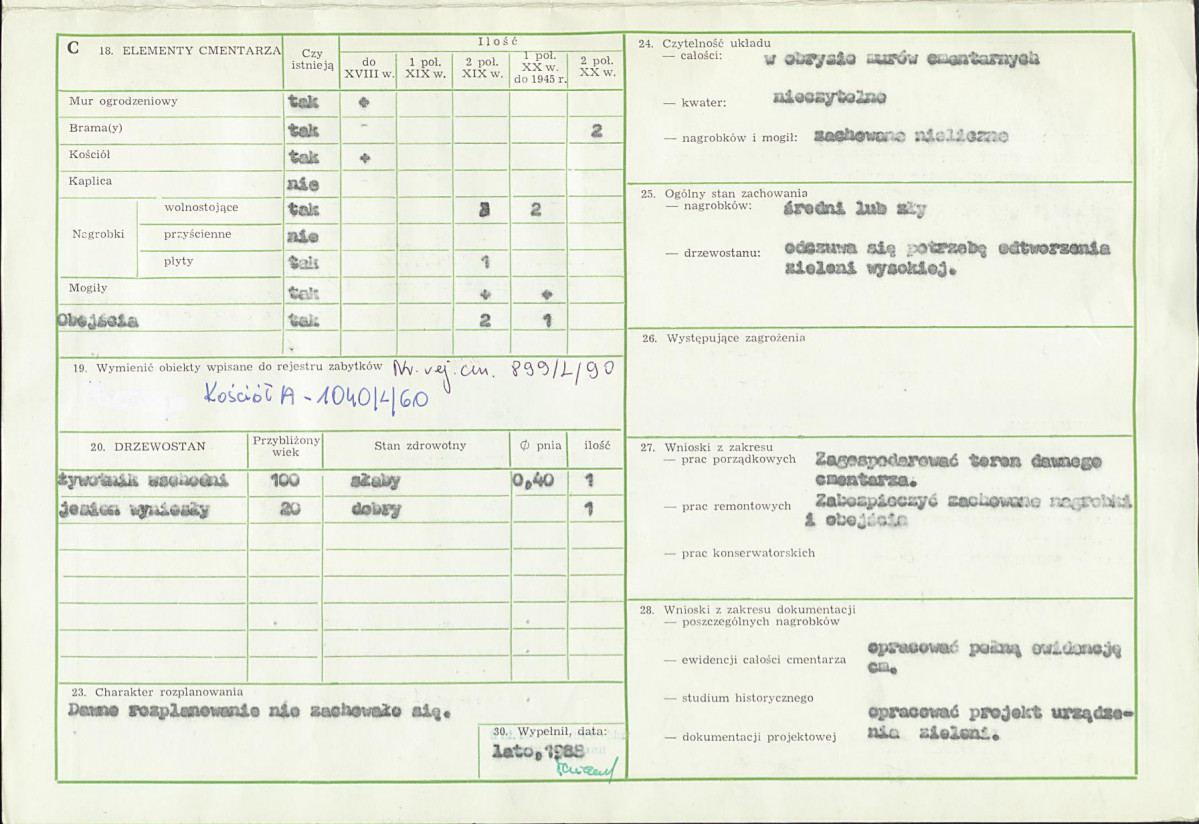 C 18. ELEMENTY CMENTARZA
Czy istnieją
Ilość
do XVIII w.
1 poł. XIX w.
2 poł. XIX w.
1 poł. XX w. do 1945 r.
2 poł. XX w.
Mur ogrodzeniowy tak +
Brama(y) tak - 2
Kościół tak +
Kaplica nie
Nagrobki
wolnostojące tak 3 2
przyścienne nie
płyty tak 1
Mogiły tak + +
Obejścia tak 2 1
19. Wymienić obiekty wpisane do rejestru zabytków Nr. rej. cm. 899/L/90
Kościół A-1040/L/60
20. DRZEWOSTAN
Przybliżony wiek
Stan zdrowotny
Ø pnia
ilość
żywotnik wschodni 100 słaby 0,40 1
jesion wyniosły 20 dobry 1
23. Charakter rozplanowania
Dawne rozplanowanie nie zachowało się.
30. Wypełnił, data:
lato, 1988
24. Czytelność układu
— całości: w obrysie murów cmentarnych
— kwater: nieczytelne
— nagrobków i mogił: zachowane nieliczne
25. Ogólny stan zachowania
— nagrobków: średni lub zły
— drzewostanu: odczuwa się potrzebę odtworzenia
zieleni wysokiej.
26. Występujące zagrożenia
27. Wnioski z zakresu
— prac porządkowych Zagospodarować teren dawnego
cmentarza.
— prac remontowych Zabezpieczyć zachowane nagrobki
i obejścia
— prac konserwatorskich
28. Wnioski z zakresu dokumentacji
— poszczególnych nagrobków
— ewidencji całości cmentarza opracować pełną ewidencję
cm.
— studium historycznego
— dokumentacji projektowej opracować projekt urządze-
nia zieleni.